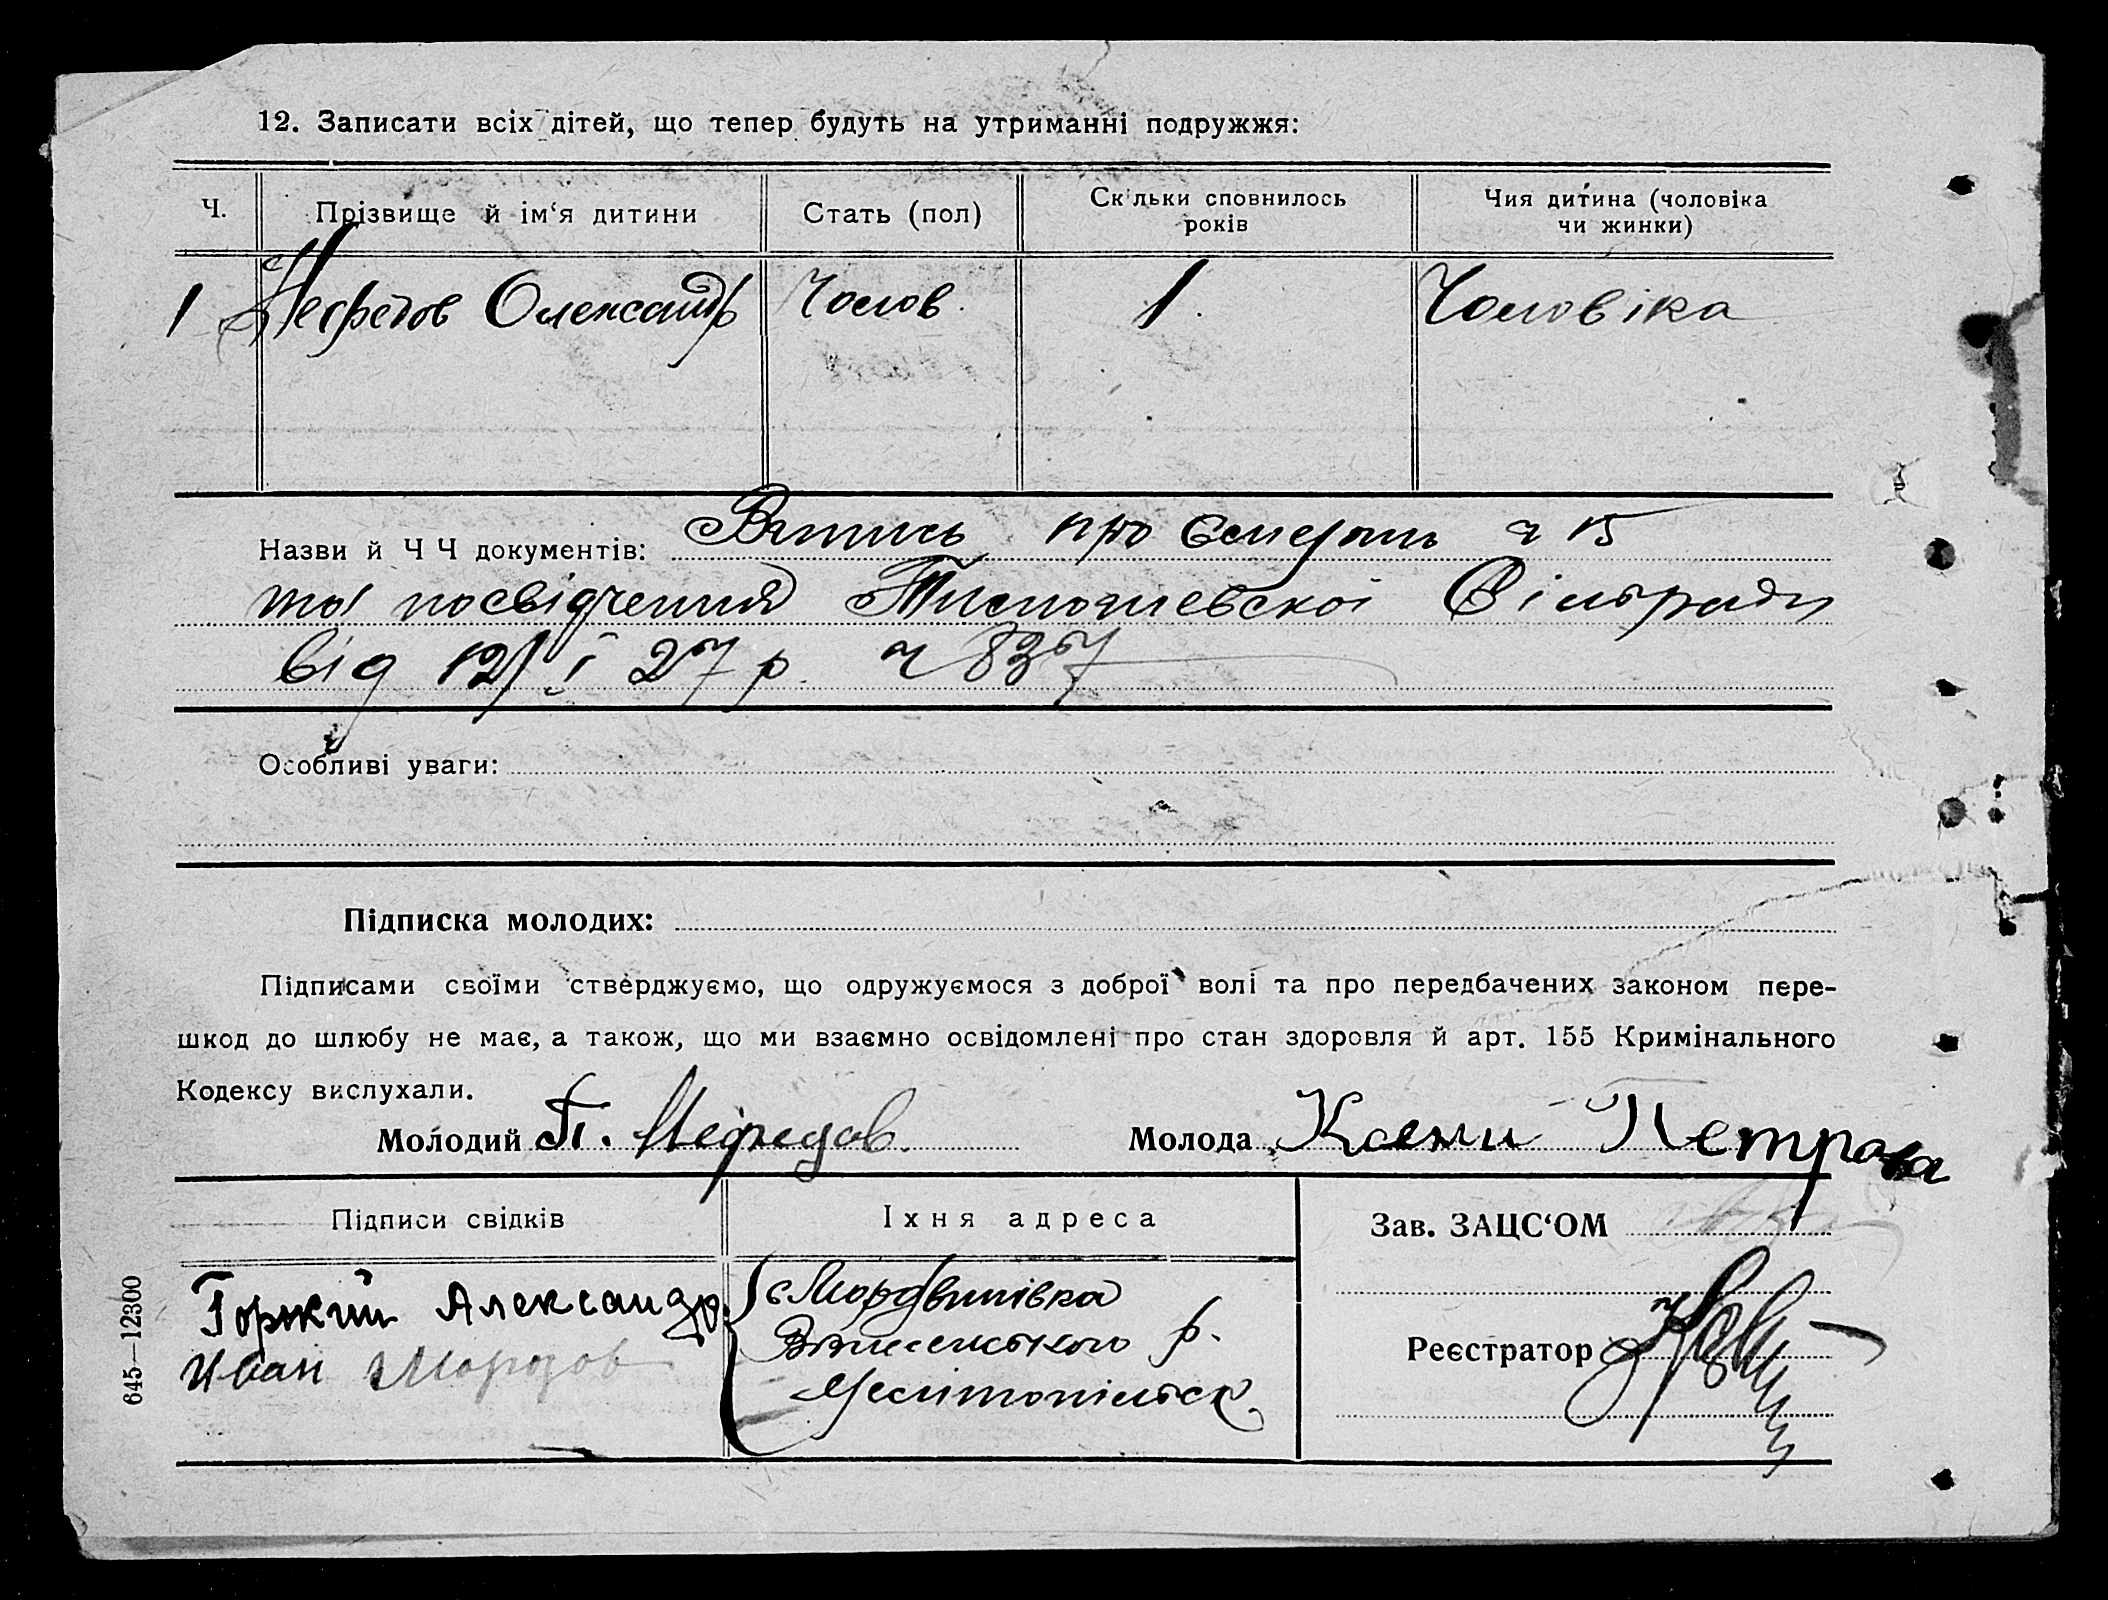 12. Записати всіх дітей, що тепер будуть на утриманні подружжя:
Ч. Прізвище й ім‘я дитини Стать (пол) Скільки сповнилось років Чия дитина (чоловіка чи жинки)
1 Нефедов Олександр Чолов. 1. Чоловіка
Назви й Ч Ч документів: Витись про смерть ч 15
та посвідчення Сільради
від 12/I 27 р. ч 837
Особливі уваги:
Підписка молодих:
Підписами своїми стверджуємо, що одружуємося з доброї волі та про передбачених законом пере-
шкод до шлюбу не має, а також, що ми взаємно освідомлені про стан здоровля й арт. 155 Кримінального
Кодексу вислухали.
Молодий П. Нефедов Молода Ксени Петрова
Підписи свідків Їхня адреса Зав. ЗАЦС‘ОМ
Горжий Александр с Мордвинівка
Иван Морозов р.
Мелітопільск.
Реєстратор
645—12300